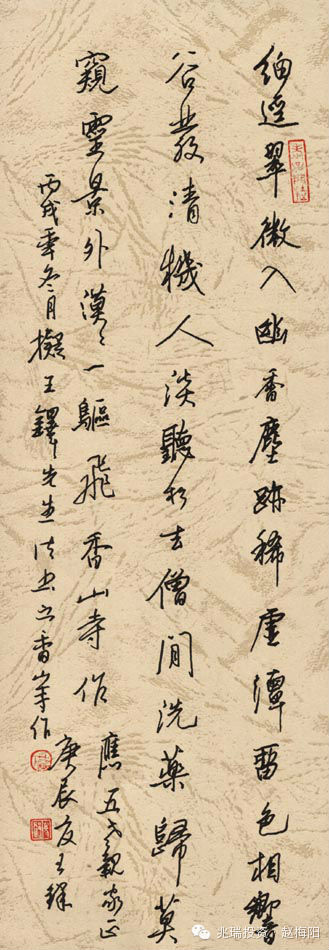 細逕翠微入幽香塵跡稀虛潭留色相響
谷發清機人淡聽松去僧閒洗藥歸莫
窺靈景外漠〻一驅飛香山寺作
親家正
庚辰夜王鐸
丙戌年冬月擬王鐸先生法書之香峯作
兆瑞投资：赵梅阳